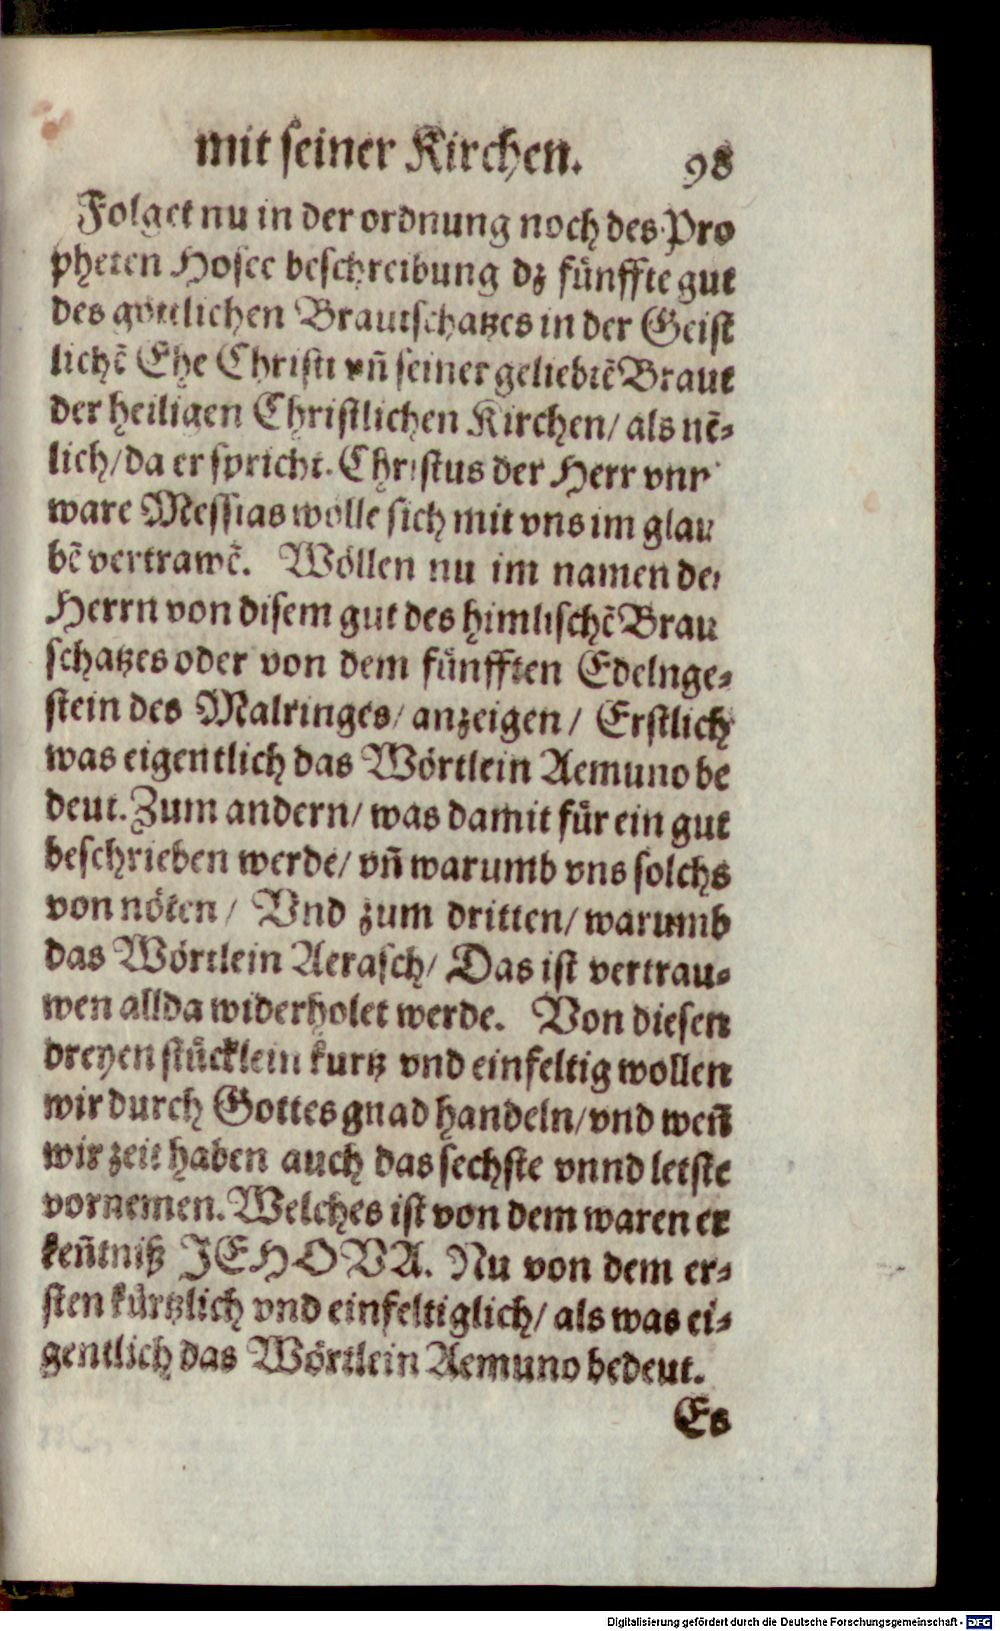 mit seiner Kirchen. 98
Folget nu in der ordnung noch des Pro
pheten Hosee beschreibung dz fünffte gut
des göttlichen Brautschatzes in der Geist
lichẽ Ehe Christi vñ seiner geliebtẽ Braut
der heiligen Christlichen Kirchen/ als nẽ-
lich/ da er spricht. Christus der Herr vnn
ware Messias wolle sich mit vns im glau
bẽ vertrawẽ. Wöllen nu im namen des
Herrn von disem gut des himlischẽ Brau
schatzes oder von dem fünfften Edelnge-
stein des Malringes/ anzeigen/ Erstlich
was eigentlich das Wörtlein Aemuno be
deut. Zum andern/ was damit für ein gut
beschrieben werde/ vñ warumb vns solchs
von nöten/ Vnd zum dritten/ warumb
das Wörtlein Aerasch/ Das ist vertrau-
wen allda widerholet werde. Von diesen
dreyen stücklein kurtz vnd einfeltig wollen
wir durch Gottes gnad handeln/ vnd weñ
wir zeit haben auch das sechste vnnd letste
vornemen. Welches ist von dem waren er
keñtniß JEHOVA. Nu von dem er-
sten kürtzlich vnd einfeltiglich/ als was ei-
gentlich das Wörtlein Aemuno bedeut.
Es
Digitalisierung gefördert durch die Deutsche Forschungsgemeinschaft - DFG